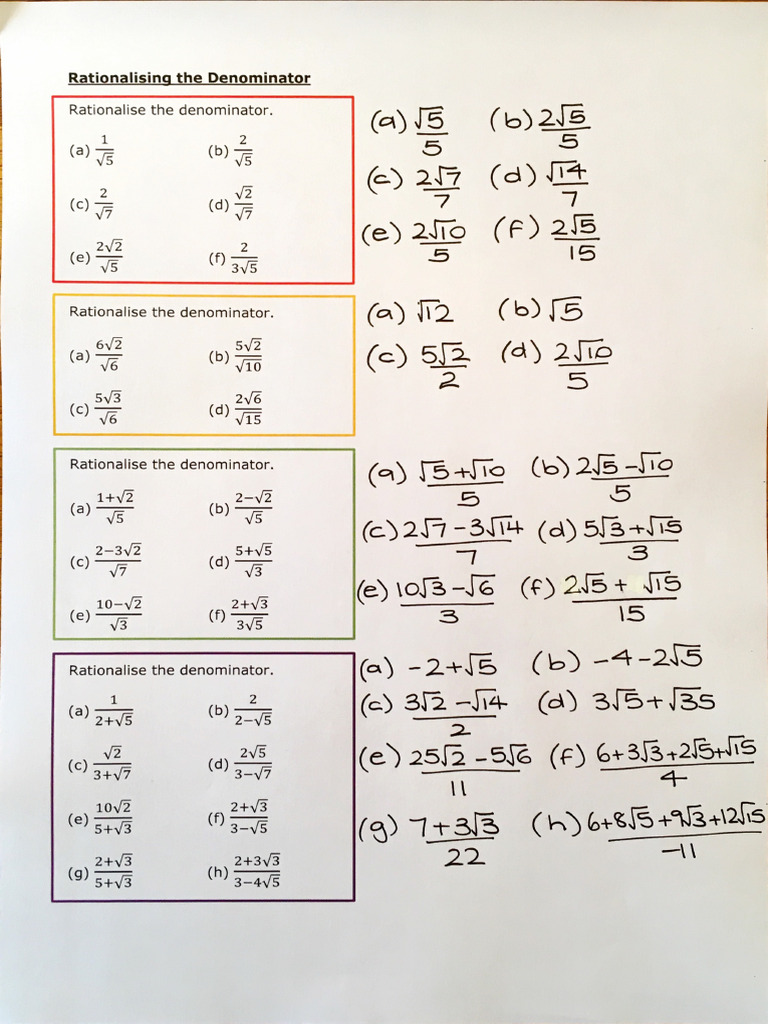 Rationalising the Denominator
Rationalise the denominator.
(a) 1/√5 (b) 2/√5
(c) 2/√7 (d) √2/√7
(e) 2√2/√5 (f) 2/3√5
(a) √5/5 (b) 2√5/5
(c) 2√7/7 (d) √14/7
(e) 2√10/5 (f) 2√5/15
Rationalise the denominator.
(a) 6√2/√6 (b) 5√2/√10
(c) 5√3/√6 (d) 2√6/√15
(a) √12 (b) √5
(c) 5√2/2 (d) 2√10/5
Rationalise the denominator.
(a) 1+√2/√5 (b) 2−√2/√5
(c) 2−3√2/√7 (d) 5+√5/√3
(e) 10−√2/√3 (f) 2+√3/3√5
(a) √5+√10/5 (b) 2√5−√10/5
(c) 2√7−3√14/7 (d) 5√3+√15/3
(e) 10√3−√6/3 (f) 2√5+√15/15
Rationalise the denominator.
(a) 1/2+√5 (b) 2/2−√5
(c) √2/3+√7 (d) 2√5/3−√7
(e) 10√2/5+√3 (f) 2+√3/3−√5
(g) 2+√3/5+√3 (h) 2+3√3/3−4√5
(a) −2+√5 (b) −4−2√5
(c) 3√2−√14/2 (d) 3√5+√35
(e) 25√2−5√6/11 (f) 6+3√3+2√5+√15/4
(g) 7+3√3/22 (h) 6+8√5+9√3+12√15/−11